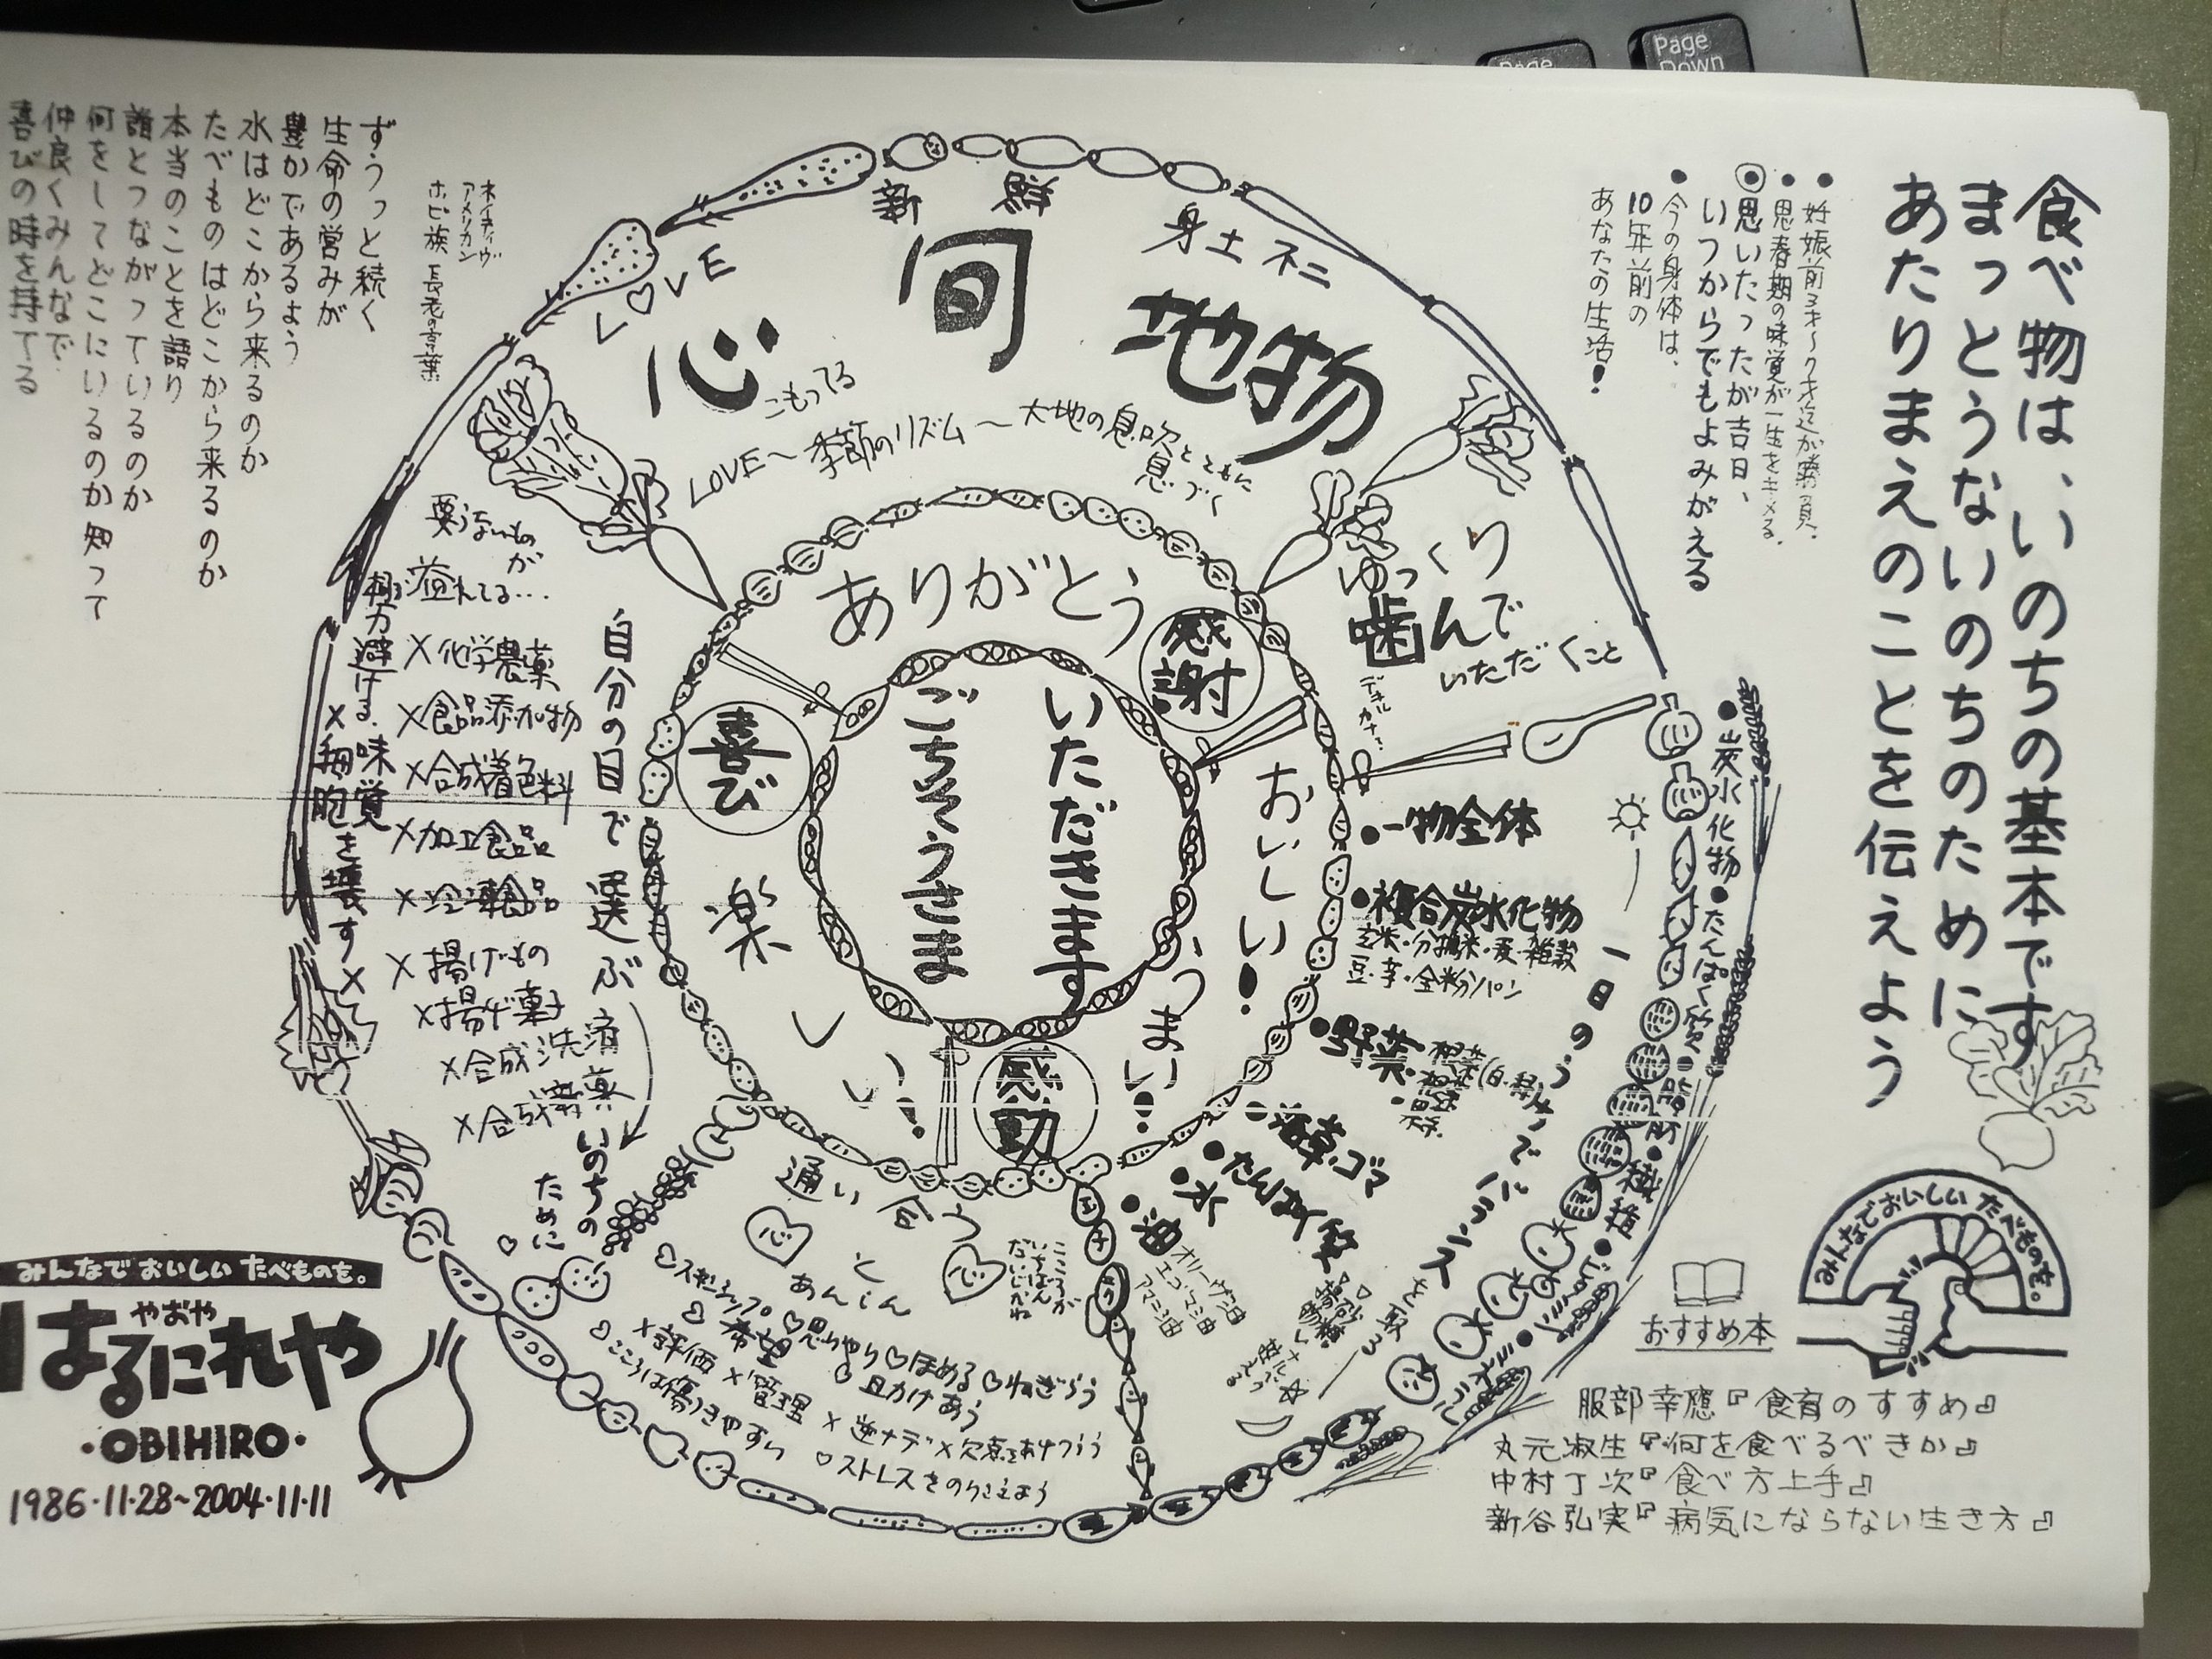 Page
Page
Down
食べ物は、いのちの基本です
まっとうないのちのために
あたりまえのことを伝えよう
●妊娠前 3才〜9才迄が勝負.
●思春期の味覚が一生をキメる.
◉思いたったが吉日、
いつからでもよみがえる
●今の身体は、
10年前の
あなたの生活!
新鮮
身土不二
LOVE
心
こもってる
旬
地物
LOVE〜季節のリズム〜大地の息吹とともに
息づく
ゆっくり
噛んで
いただくこと
デキルカナ?
ありがとう
感謝
おいしい!
うまい!
感動
楽しい!
喜び
いただきます
ごちそうさま
●一物全体
●複合炭水化物
玄米・分搗米・麦・雑穀
豆・芋・全粉パン
●野菜
●海草・ゴマ
●たんぱく質
●水
●油
オリーヴ油
エゴマ油
アマニ油
一日のうちでバランスを取る
●炭水化物●たんぱく質●脂肪●繊維●ビタミン●ミネラル
通い合う
心
と
あんしん
心
こころが
いちばん
だいじかね
♡スキンシップ ♡思いやり ♡ほめる ♡ねぎらう
♡希望 ♡目かけあう
×評価 ×管理 ×逆ナデ ×欠点をあげつらう
♡こころは傷つきやすい ♡ストレスをのりこえよう
自分の目で選ぶ
いのちの
ために
♡
要らないもの
が
溢れてる…
極力避ける.味覚
×細胞を壊す×
×化学農薬
×食品添加物
×合成着色料
×加工食品
×冷凍食品
×揚げもの
×揚げ菓子
×合成洗剤
×合成薬
ネイティヴ
アメリカン
ホピ族 長老の言葉
ずうっと続く
生命の営みが
豊かであるよう
水はどこから来るのか
たべものはどこから来るのか
本当のことを語り
誰とつながっているのか
何をしてどこにいるのか知って
仲良くみんなで
喜びの時を持てる
みんなでおいしいたべものを。
やおや
はるにれや
・OBIHIRO・
1986・11・28~2004・11・11
みんなでおいしいたべものを。
おすすめ本
服部幸應『食育のすすめ』
丸元淑生『何を食べるべきか』
中村丁次『食べ方上手』
新谷弘実『病気にならない生き方』